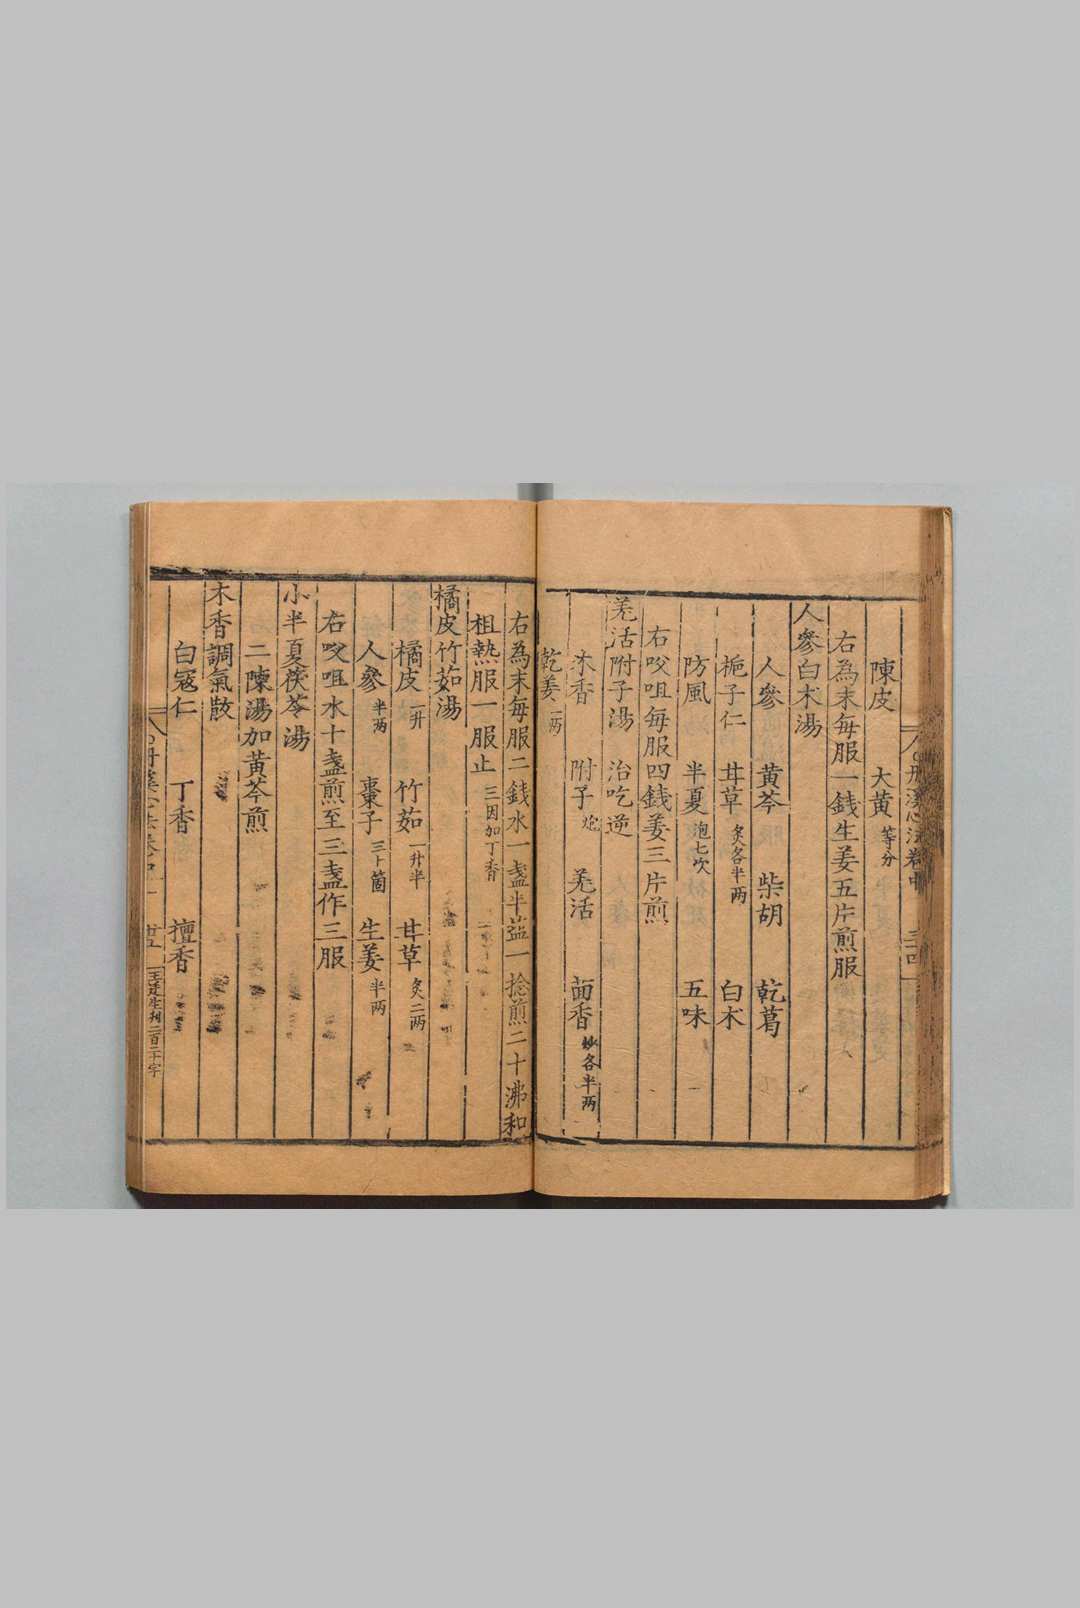 丹溪心法卷中
陳皮 大黃等分
右為末每服一錢生姜五片煎服
人參白朮湯
人參 黃芩 柴胡 乾葛
梔子仁 甘草炙各半两 白朮
防風 半夏泡七次 五味
右㕮咀每服四錢姜三片煎
羌活附子湯 治吃逆
木香 附子炮 羌活 茴香炒各半两
乾姜一两
右為末每服二錢水一盞半盐一捻煎二十沸和
柤熱服一服止三因加丁香
橘皮竹茹湯
橘皮一升 竹茹一升半 甘草炙二两
人參半两 棗子三十箇 生姜半两
右㕮咀水十盞煎至三盞作三服
小半夏茯苓湯
二陳湯加黃芩煎
木香調氣散
白寇仁 丁香 檀香
廿五 王廷生刊二百二十字